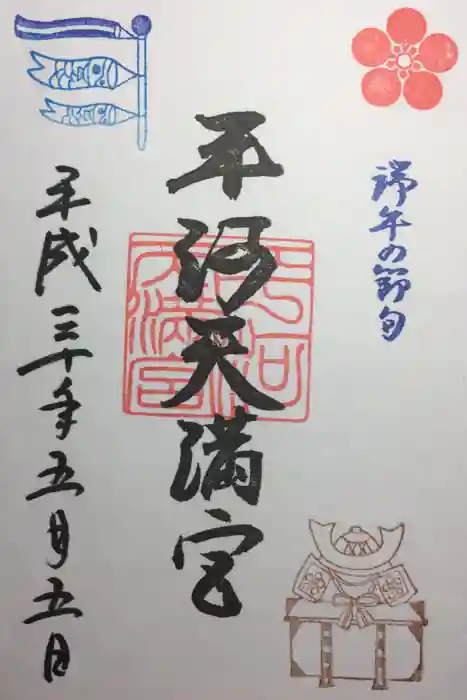 端午の節句
平河天満宮
平成三十年五月五日